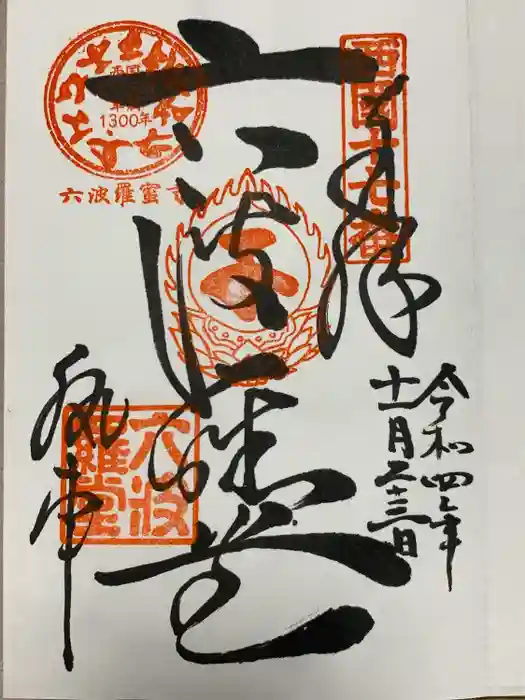 西国十七番
奉拝
令和四年
十一月二十三日
六波羅堂
1300年
六波羅蜜寺
六波羅堂
執事